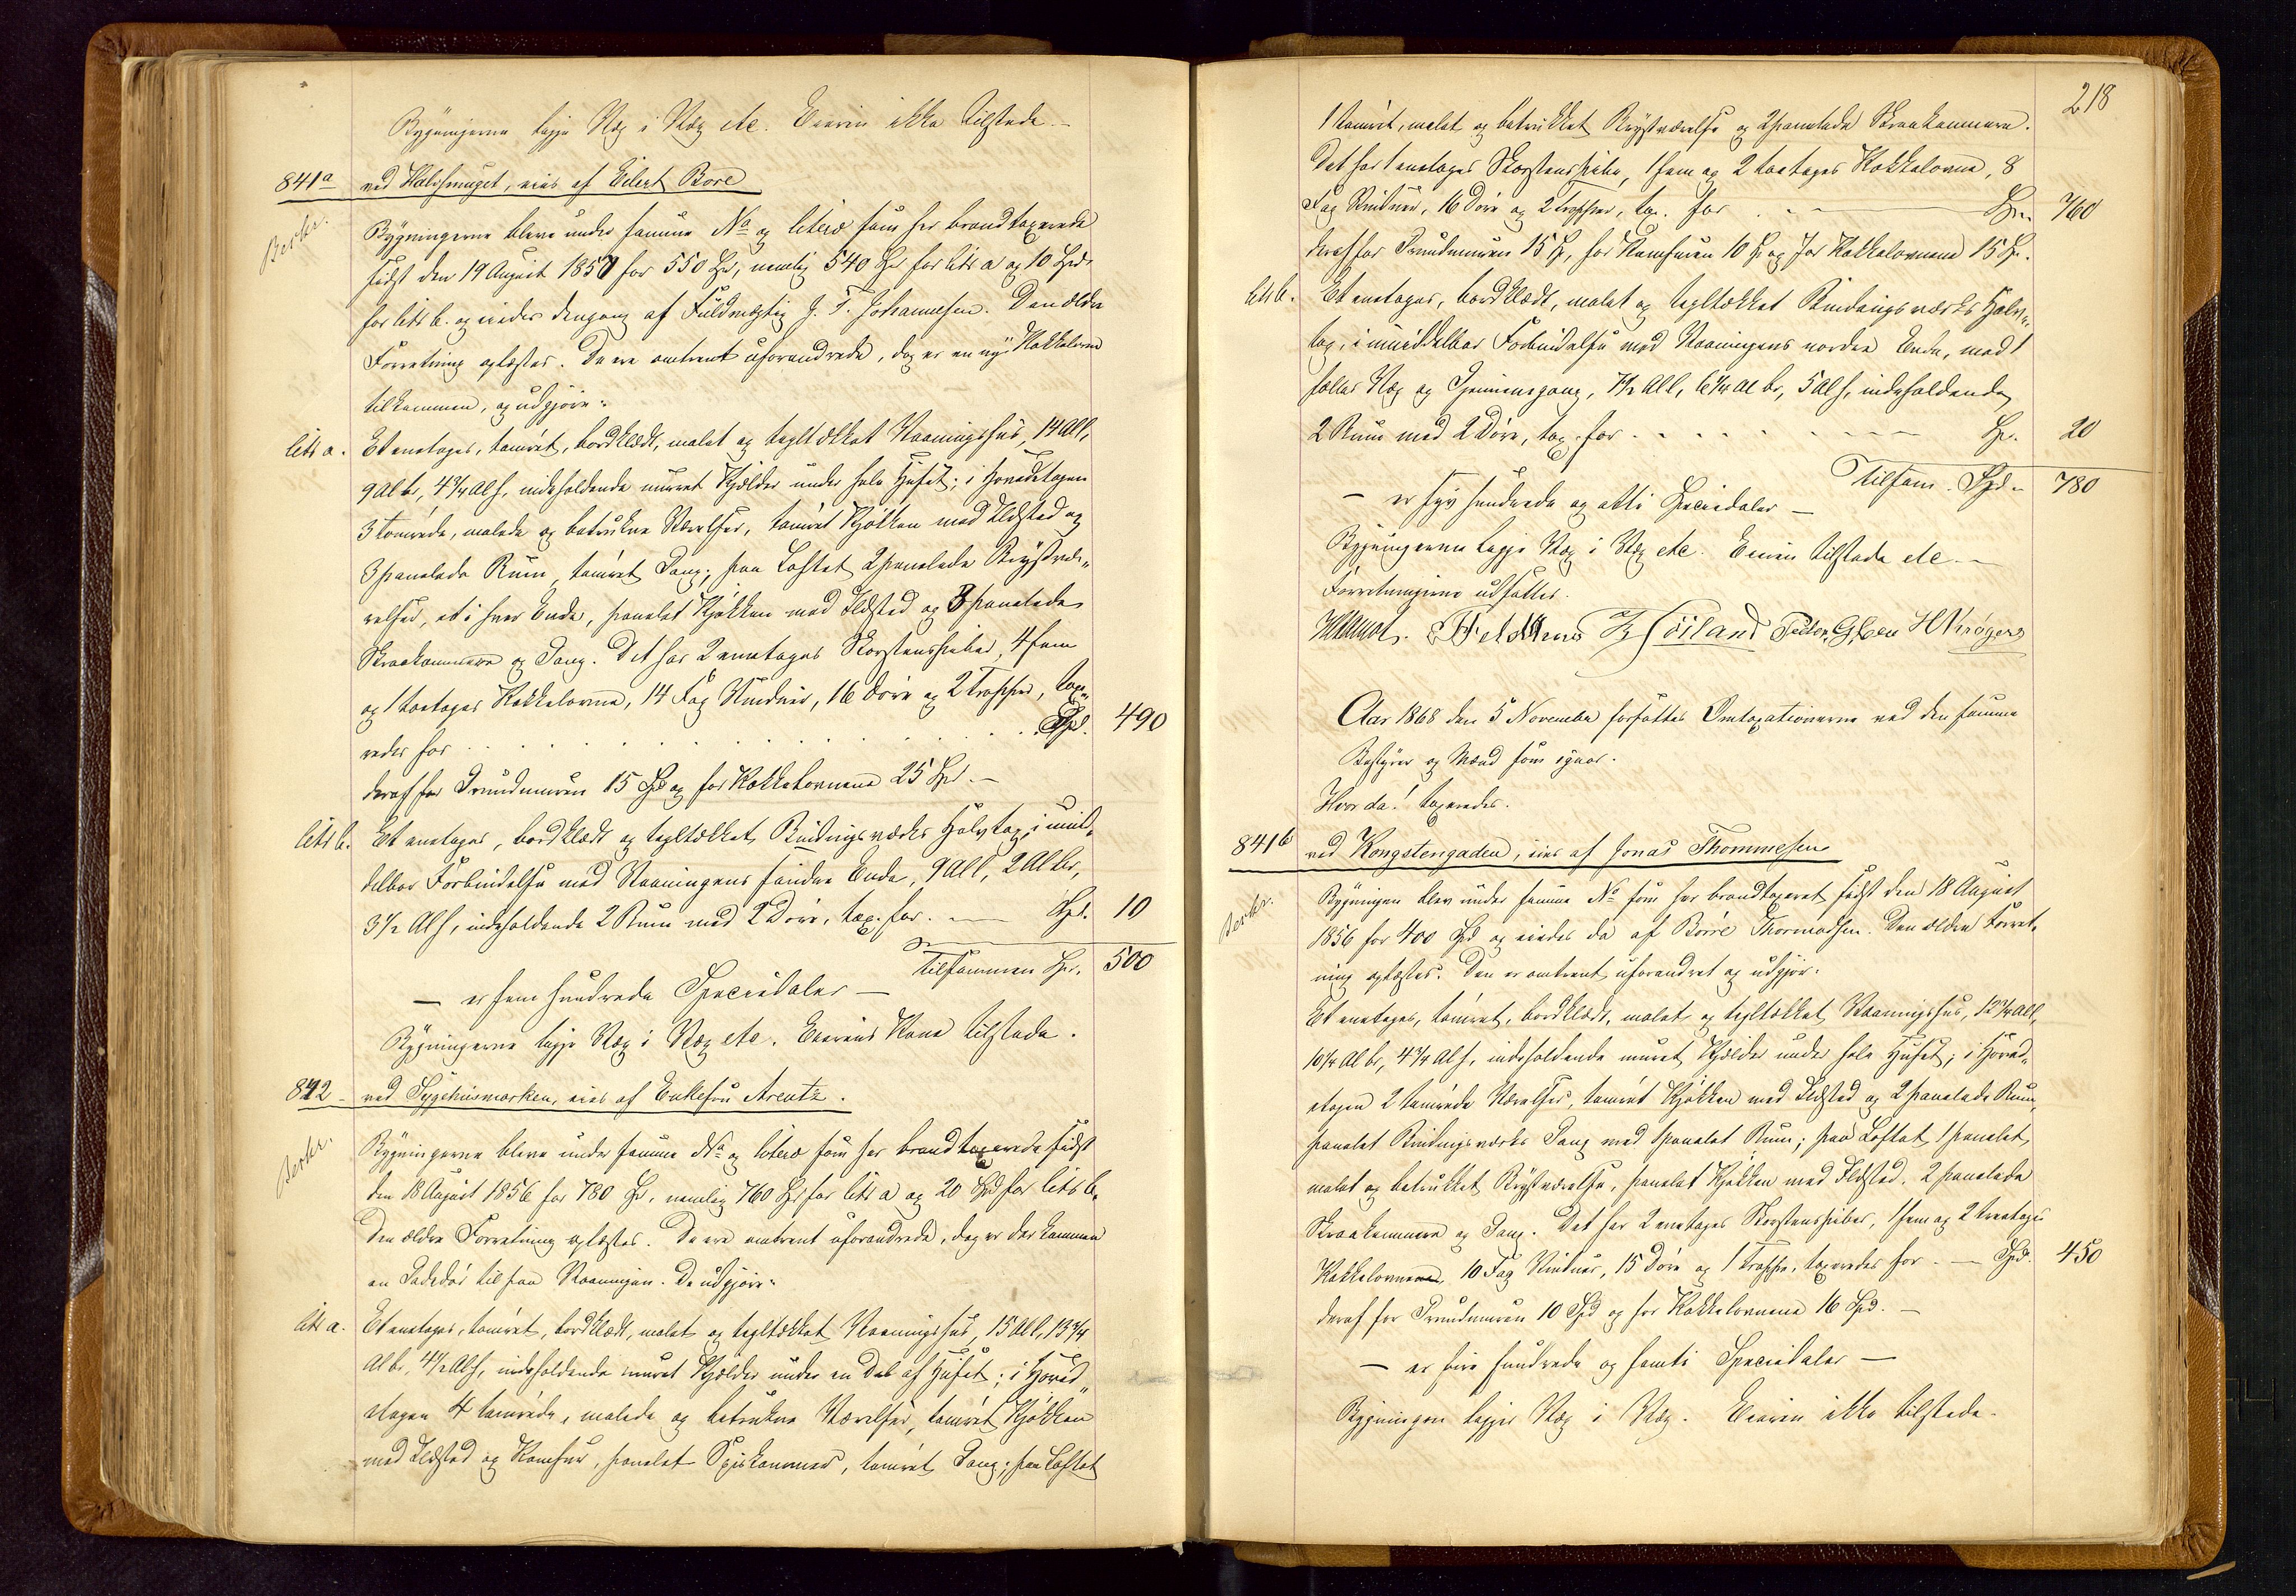 Bygningerne ligge Væg i Væg etc. Eieren ikke tilstede.
841a ved Halvsmuget, eies af Eilert Bore
Beskr. Bygningerne bleve under samme No og litera som her brandtaxerede
sidst den 19 August 1857 for 550 Spd, nemlig 540 Spd for litr a og 10 Spd
for litr b. og eiedes dengang af Fuldmægtig J. T. Johannesen. Den ældre
Forretning oplæstes. De ere omtrent uforandrede, dog er en ny Kakkelovn
tilkommen, og udgjøre:
litr a. Et enetages, tømret, bordklædt, malet og tegltækket Vaaningshus, 14 Al l,
9 Al br, 4 3/4 Al h, indeholdende muret Kjælder under hele Huset; i Hovedetagen
3 tømrede, malede og betrukne Værelser, tømret Kjøkken med Ildsted og
3 panelede Rum, tømret Gang; paa Loftet 2 panelede Røstvæ-
relser, et i hver Ende, panelet Kjøkken med Ildsted og 3 panelede
Skraakammere og Gang. Det har 2 enetages Skorstenspiber, 4 fem
og 1 toetages Kakkelovne, 14 Fag Vinduer, 16 Døre og 2 Trapper, taxe-
redes for . . . Spd. 490
deraf for Grundmuren 15 Spd og for Kakkelovnene 25 Spd.
litr b. Et enetages, bordklædt og tegltækket Bindingsværks Halvtag, i umid-
delbar Forbindelse med Vaaningens søndre Ende, 9 Al l, 2 Al br,
3 1/2 Al h, indeholdende 2 Rum med 2 Døre, tax. for. Spd. 10
Tilsammen Spd. 500
— er fem hundrede Speciedaler —
Bygningerne ligge Væg i Væg etc. Eierens Kone tilstede.
842 ved Sygehusmarken, eies af Enkefru Arentz.
Beskr. Bygningerne bleve under samme No og litera som her brandtaxerede sidst
den 18 August 1856 for 780 Spd, nemlig 760 Spd for litr a og 20 Spd for litr b.
Den ældre Forretning oplæstes. De ere omtrent uforandrede, dog er der kommen
en Gadedør til paa Vaaningen. De udgjøre:
litr a. Et enetages, tømret, bordklædt, malet og tegltækket Vaaningshus, 15 Al l, 13 3/4
Al br, 4 1/2 Al h, indeholdende muret Kjælder under en Del af Huset; i Hoved-
etagen 4 tømrede, malede og betrukne Værelser, tømret Kjøkken
med Ildsted og Komfur, panelet Spiskammer, tømret Gang; paa Loftet
218
1 tømret, malet og betrukket Røstværelse og 2 panelede Skraakammere.
Det har 1 enetages Skorstenspibe, 1 fem og 2 toetages Kakkelovne, 8
Fag Vinduer, 16 Døre og 2 Trapper, tax. for Spd. 760
deraf for Grundmuren 15 Spd, for Komfuren 10 Spd og for Kakkelovnene 15 Spd.
litr b. Et enetages, bordklædt, malet og tegltækket Bindingsværks Halv-
tag, i umiddelbar Forbindelse med Vaaningens nordre Ende, med 1
fælles Væg og Gjennemgang, 7 1/2 Al l, 6 1/4 Al br, 5 Al h, indeholdende
2 Rum med 2 Døre, tax. for Spd. 20
Tilsam. Spd. 780
— er syv hundrede og otti Speciedaler —
Bygningerne ligge Væg i Væg etc. Eieren tilstede etc.
Forretningerne udsattes.
Høiland Peder Gjøen H Krøger
Aar 1868 den 5 November fortsattes Omtaxationerne ved den samme
Bestyrer og Mænd som igaar.
Hvor da! taxeredes.
841b ved Kongstengaden, eies af Jonas Thommesen
Beskr. Bygningen blev under samme No som her brandtaxeret sidst den 18 August
1856 for 400 Spd og eiedes da af Børre Thormodsen. Den ældre Forret-
ning oplæstes. Den er omtrent uforandret og udgjør:
Et enetages, tømret, bordklædt, malet og tegltækket Vaaningshus, 12 3/4 Al l,
10 1/4 Al br, 4 3/4 Al h, indeholdende muret Kjælder under hele Huset; i Hoved-
etagen 2 tømrede Værelser, tømret Kjøkken med Ildsted og 2 panelede Rum,
panelet Bindingsværks Gang med 1 panelet Rum; paa Loftet 1 panelet,
malet og betrukket Røstværelse, panelet Kjøkken med Ildsted, 2 panelede
Skraakammere og Gang. Det har 2 enetages Skorstenspiber, 1 fem og 2 treetages
Kakkelovne, 10 Fag Vinduer, 15 Døre og 1 Trappe, taxeredes for Spd. 450
deraf for Grundmuren 10 Spd og for Kakkelovnene 16 Spd.
— er fire hundrede og femti Speciedaler —
Bygningen ligger Væg i Væg. Eieren ikke tilstede.